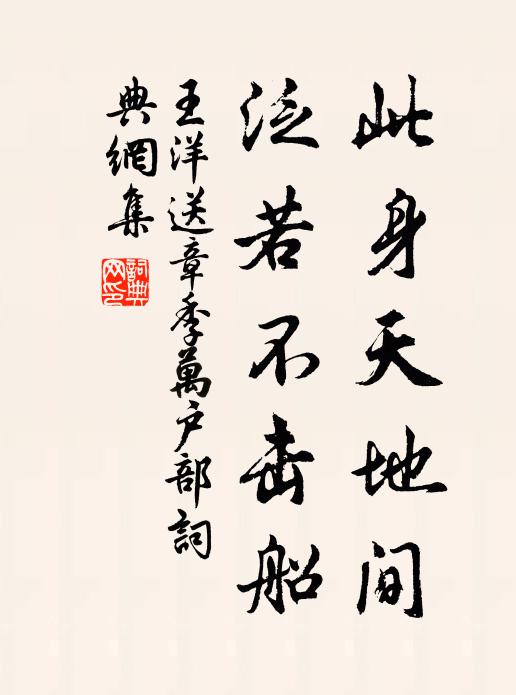 此身天地间
泛若不击船
王洋送章季萬户部詞
典網集
詞典
网印